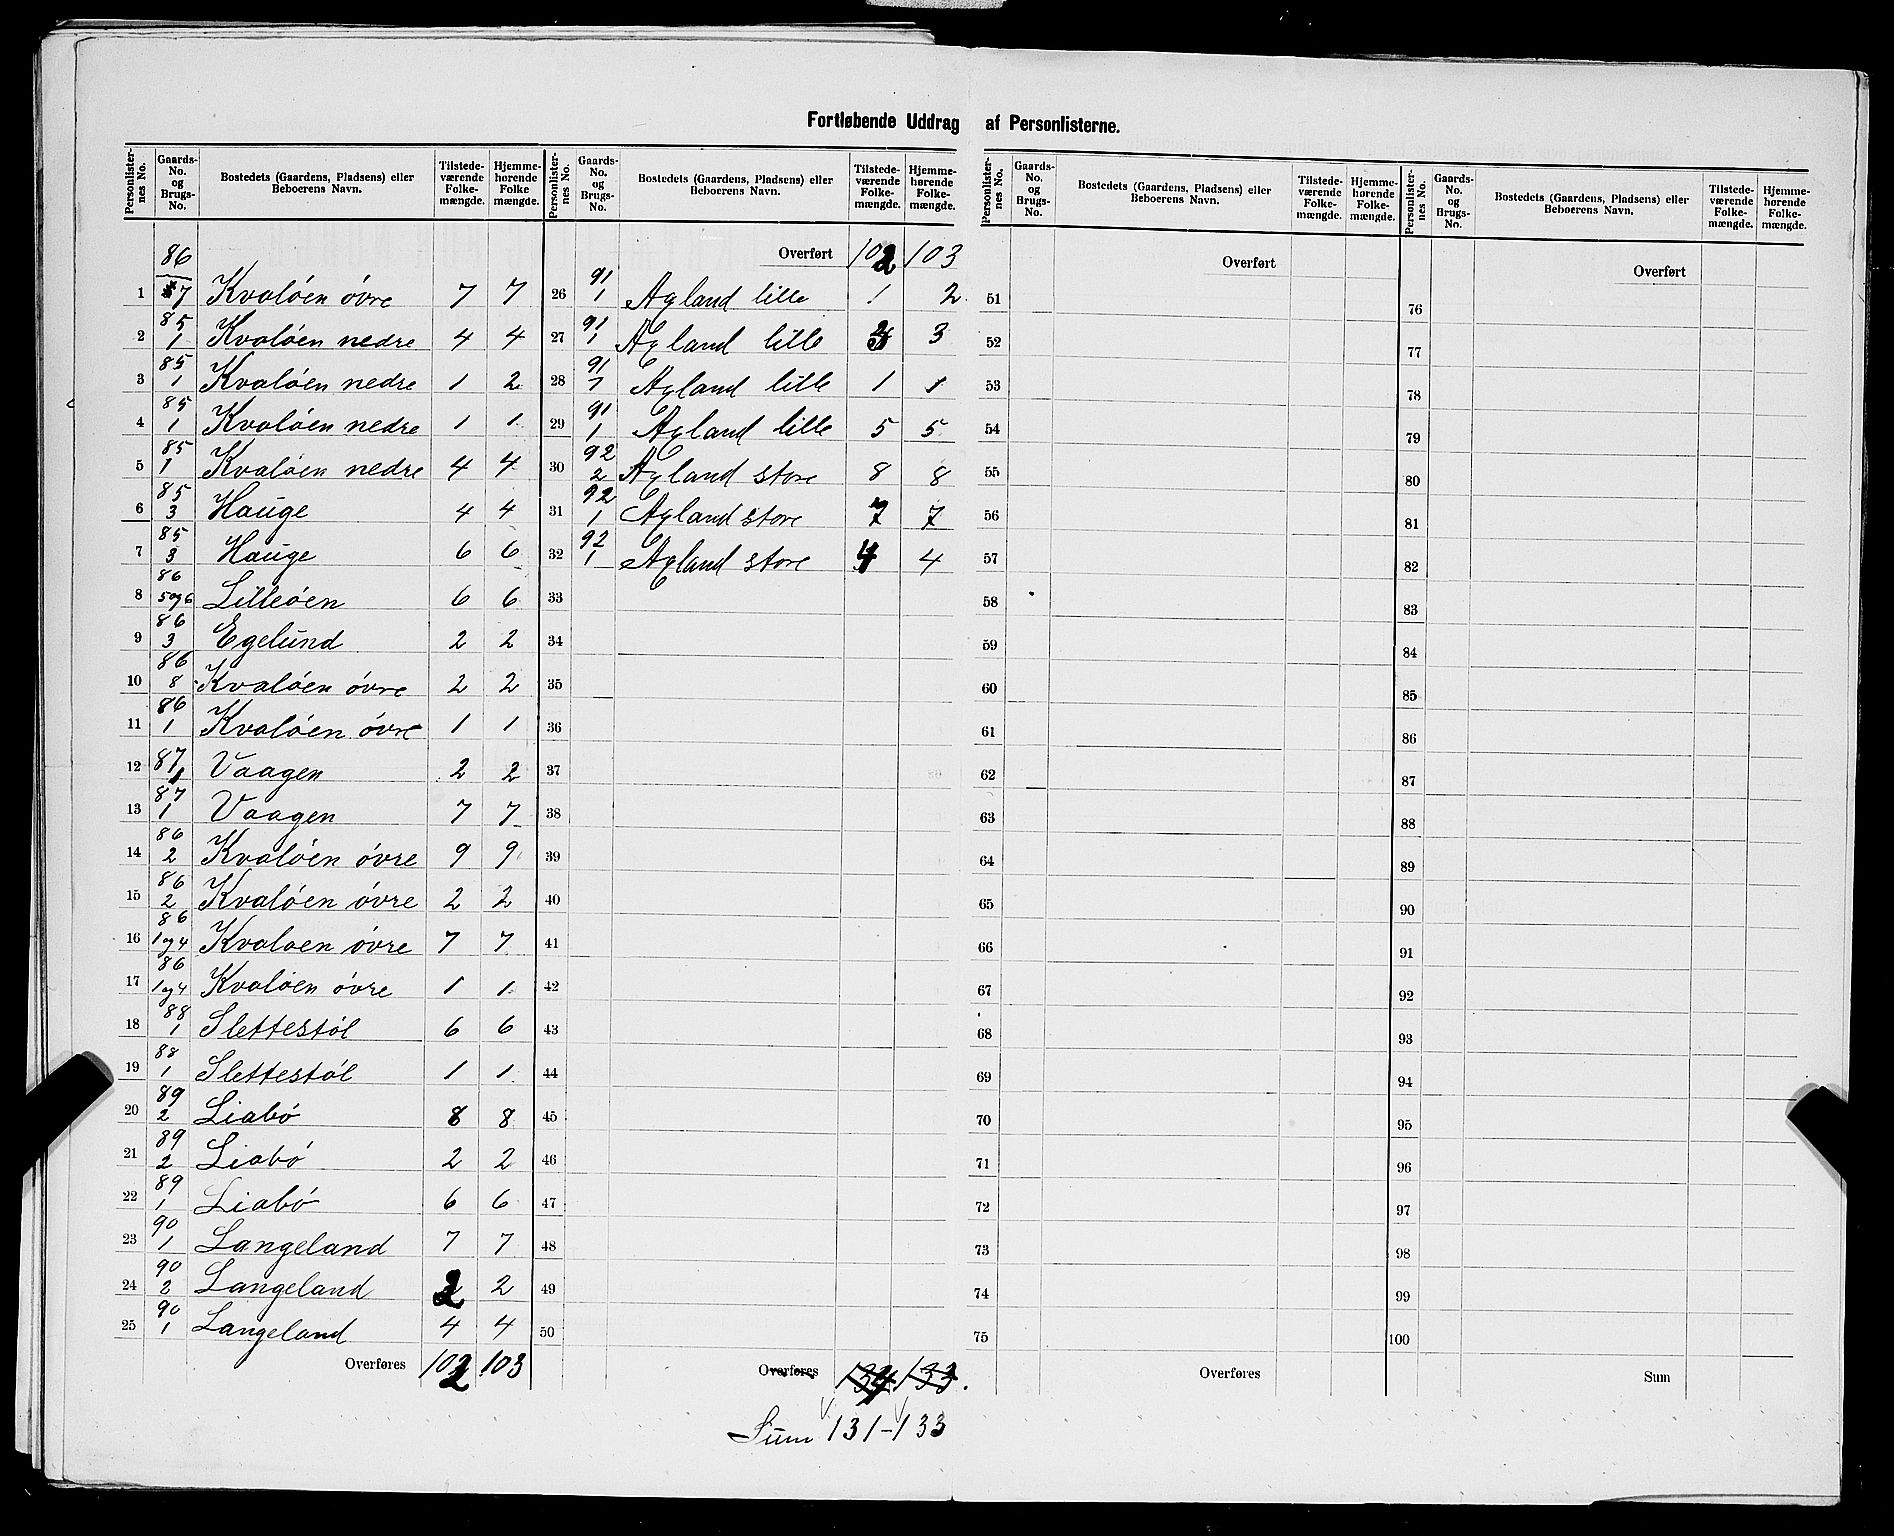 Fortløbende Uddrag af Personlisterne.
Personlisternes No. | Gaards-No. og Brugs-No. | Bostedets (Gaardens, Pladsens) eller Beboerens Navn. | Tilstedeværende Folkemængde. | Hjemmehørende Folkemængde.
Personlisternes No. | Gaards-No. og Brugs-No. | Bostedets (Gaardens, Pladsens) eller Beboerens Navn. | Tilstedeværende Folkemængde. | Hjemmehørende Folkemængde.
Personlisternes No. | Gaards-No. og Brugs-No. | Bostedets (Gaardens, Pladsens) eller Beboerens Navn. | Tilstedeværende Folkemængde. | Hjemmehørende Folkemængde.
Personlisternes No. | Gaards-No. og Brugs-No. | Bostedets (Gaardens, Pladsens) eller Beboerens Navn. | Tilstedeværende Folkemængde. | Hjemmehørende Folkemængde.
1 86/7 Kvaløen øvre 7 7
2 85/1 Kvaløen nedre 4 4
3 85/1 Kvaløen nedre 1 2
4 85/1 Kvaløen nedre 1 1
5 85/1 Kvaløen nedre 4 4
6 85/3 Hauge 4 4
7 85/3 Hauge 6 6
8 86/5 og 6 Lilleøen 6 6
9 86/3 Egelund 2 2
10 86/8 Kvaløen øvre 2 2
11 86/1 Kvaløen øvre 1 1
12 87/1 Vaagen 2 2
13 87/1 Vaagen 7 7
14 86/2 Kvaløen øvre 9 9
15 86/2 Kvaløen øvre 2 2
16 86/1 og 4 Kvaløen øvre 7 7
17 86/1 og 4 Kvaløen øvre 1 1
18 88/1 Slettestøl 6 6
19 88/1 Slettestøl 1 1
20 89/2 Liabø 8 8
21 89/2 Liabø 2 2
22 89/1 Liabø 6 6
23 90/1 Langeland 7 7
24 90/2 Langeland 2 2
25 90/1 Langeland 4 4
Overføres 102 103
Overført 102 103
26 91/1 Axland lille 1 2
27 91/1 Axland lille 3 3
28 91/7 Axland lille 1 1
29 91/1 Axland lille 5 5
30 92/2 Axland store 8 8
31 92/1 Axland store 7 7
32 92/1 Axland store 4 4
33
34
35
36
37
38
39
40
41
42
43
44
45
46
47
48
49
50
Overføres 134 133.
Sum 131 - 133
Overført
51
52
53
54
55
56
57
58
59
60
61
62
63
64
65
66
67
68
69
70
71
72
73
74
75
Overføres
Overført
76
77
78
79
80
81
82
83
84
85
86
87
88
89
90
91
92
93
94
95
96
97
98
99
100
Sum